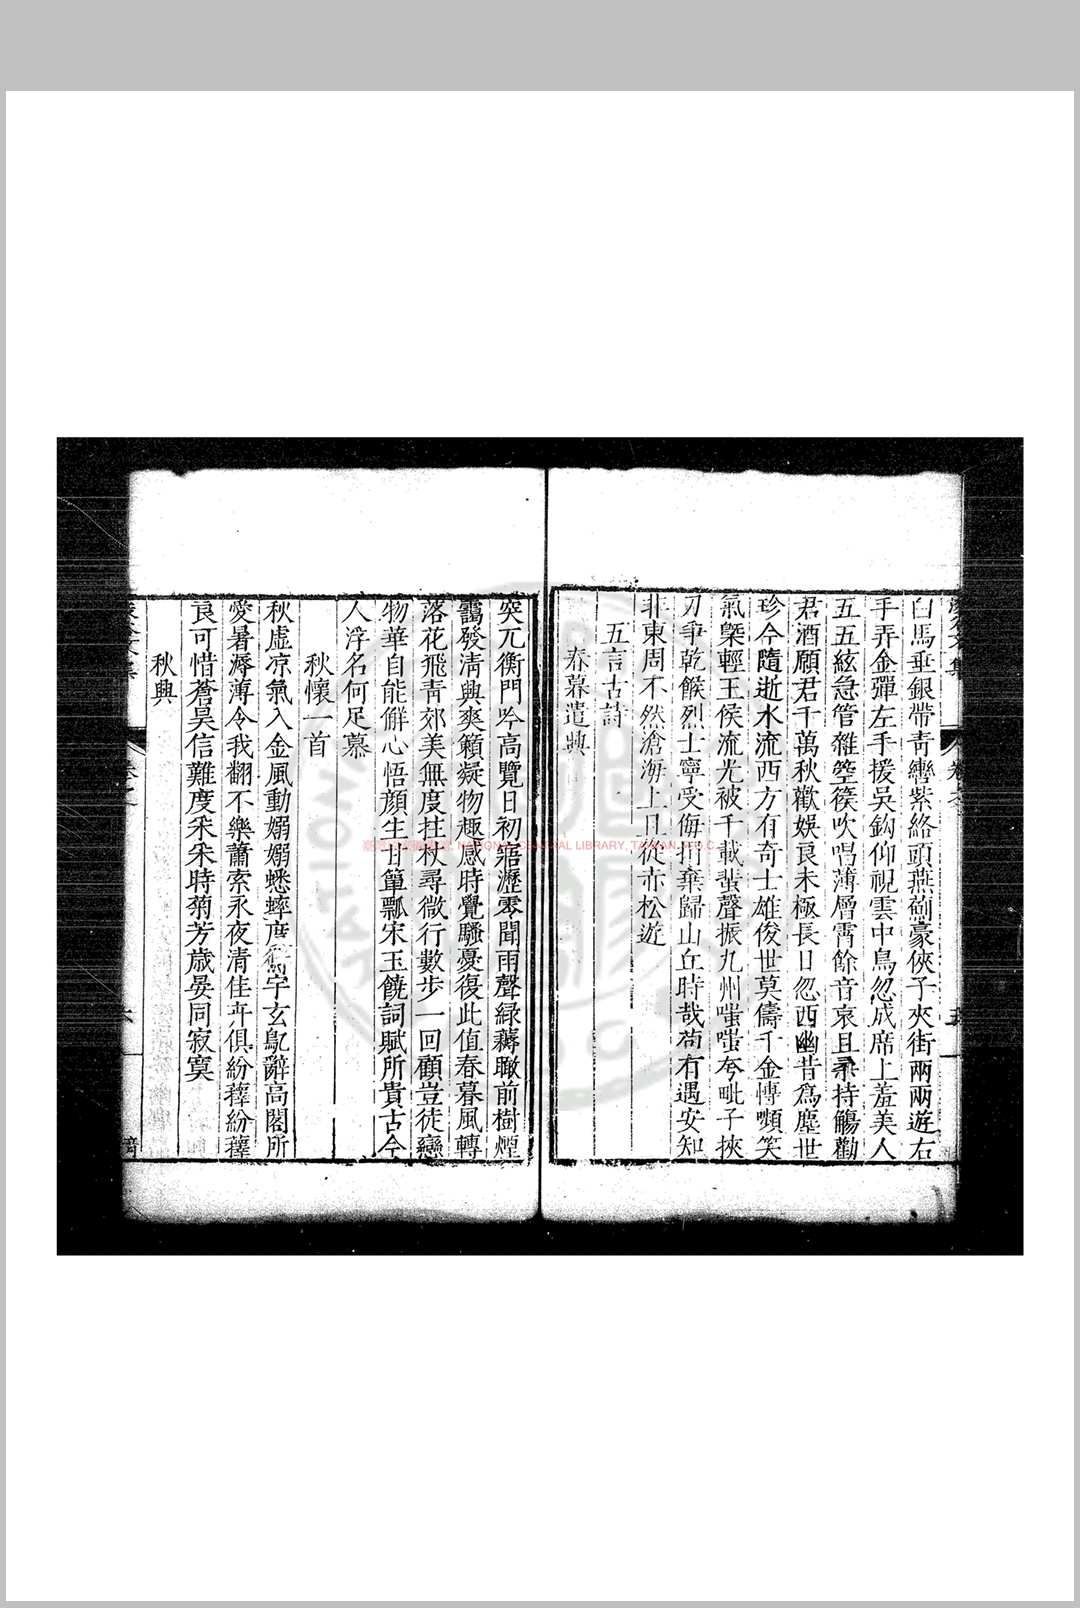 白馬垂銀帶青轡紫絡頭燕薊豪俠子夾街兩兩遊右
手弄金彈左手援吳鈎仰視雲中鳥忽成席上羞美人
五五絃急管雜箜篌吹唱薄層霄餘音哀且柔持觴勸
君酒願君千萬秋歡娛良未極長日忽西幽昔爲塵世
珍今隨逝水流西方有奇士雄俊世莫儔千金慱嚬笑
氣槩輕王侯流光被千載蜚聲振九州嗤嗤夸毗子挾
刃爭乾餱烈士寧受侮捐棄歸山丘時哉苟有遇安知
非東周不然滄海上且從赤松遊
五言古詩
春暮遣興
突兀衡門吟高覽日初㴑瀝零聞雨聲緑蓊瞰前樹煙
靄發淸興爽籟凝物趣感時覺騷憂復此值春暮風轉
落花飛青郊美無度拄杖尋微行數步一回顧豈徒戀
物華自能觧心悟顔生甘簞瓢宋玉饒詞賦所貴古今
人浮名何足慕
秋懷一首
秋虛凉氣入金風動嫋嫋蟋蟀庶宇玄鳦辭高閣所
愛暑溽薄令我翻不樂蕭索永夜清佳卉俱紛蘀紛蘀
良可惜蒼昊信難度采采時菊芳歲晏同寂寞
秋興
NATIONAL CENTRAL LIBRARY, TAIWAN, R.O.C.